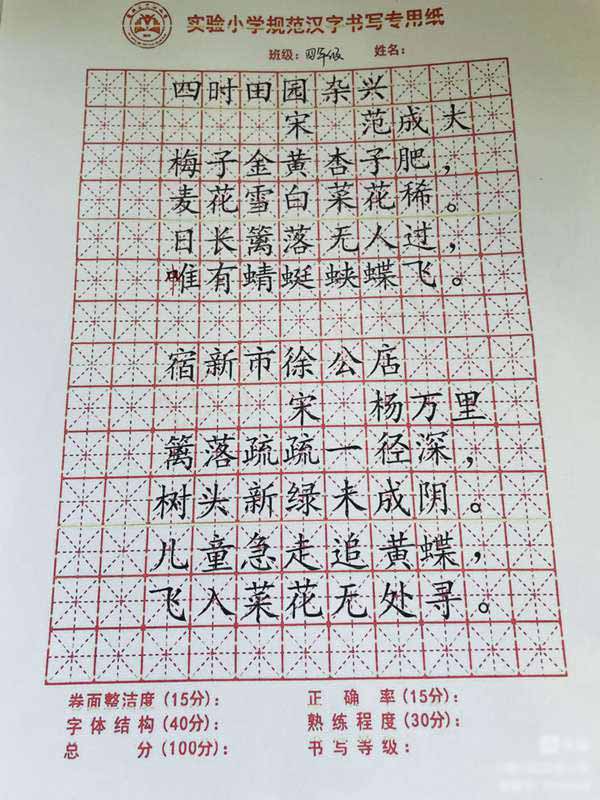 实验小学规范汉字书写专用纸
班级：四年级 姓名：
四时田园杂兴
宋 范成大
梅子金黄杏子肥，
麦花雪白菜花稀。
日长篱落无人过，
唯有蜻蜓蛱蝶飞。
宿新市徐公店
宋 杨万里
篱落疏疏一径深，
树头新绿未成阴。
儿童急走追黄蝶，
飞入菜花无处寻。
卷面整洁度（15分）： 正确率（15分）：
字体结构（40分）： 熟练程度（30分）：
总分（100分）： 书写等级：